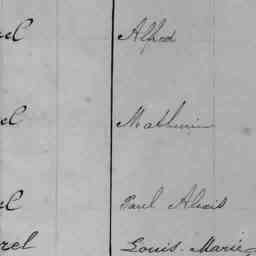 el Alfred
el Mathurin
el Paul Alexis
rel Louis Marie